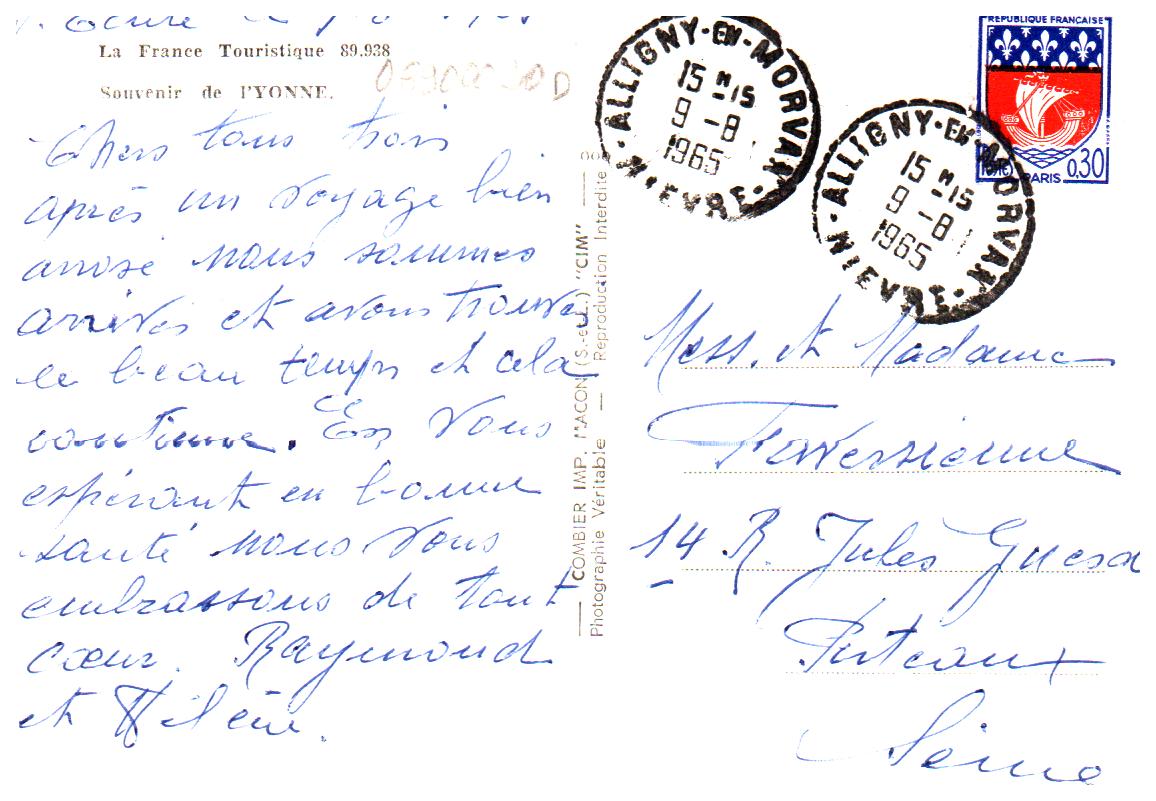 La France Touristique 89.938
Souvenir de l'YONNE.
Chers tous trois
après un voyage bien
arrosé nous sommes
arrivés et avons trouvé
le beau temps et cela
continue. En vous
espérant en bonne
santé nous vous
embrassons de tout
cœur. Raymond
et Hélène.
COMBIER IMP. MACON (S.-et-L.) "CIM"
Photographie Véritable — Reproduction Interdite
ALLIGNY-EN-MORVAN
15 H 15
9 - 8
1965
NIEVRE
ALLIGNY-EN-MORVAN
15 H 15
9 - 8
1965
NIEVRE
REPUBLIQUE FRANÇAISE
PARIS 0,30
Mess. et Madame
14 R. Jules Guesd
Puteaux
Seine